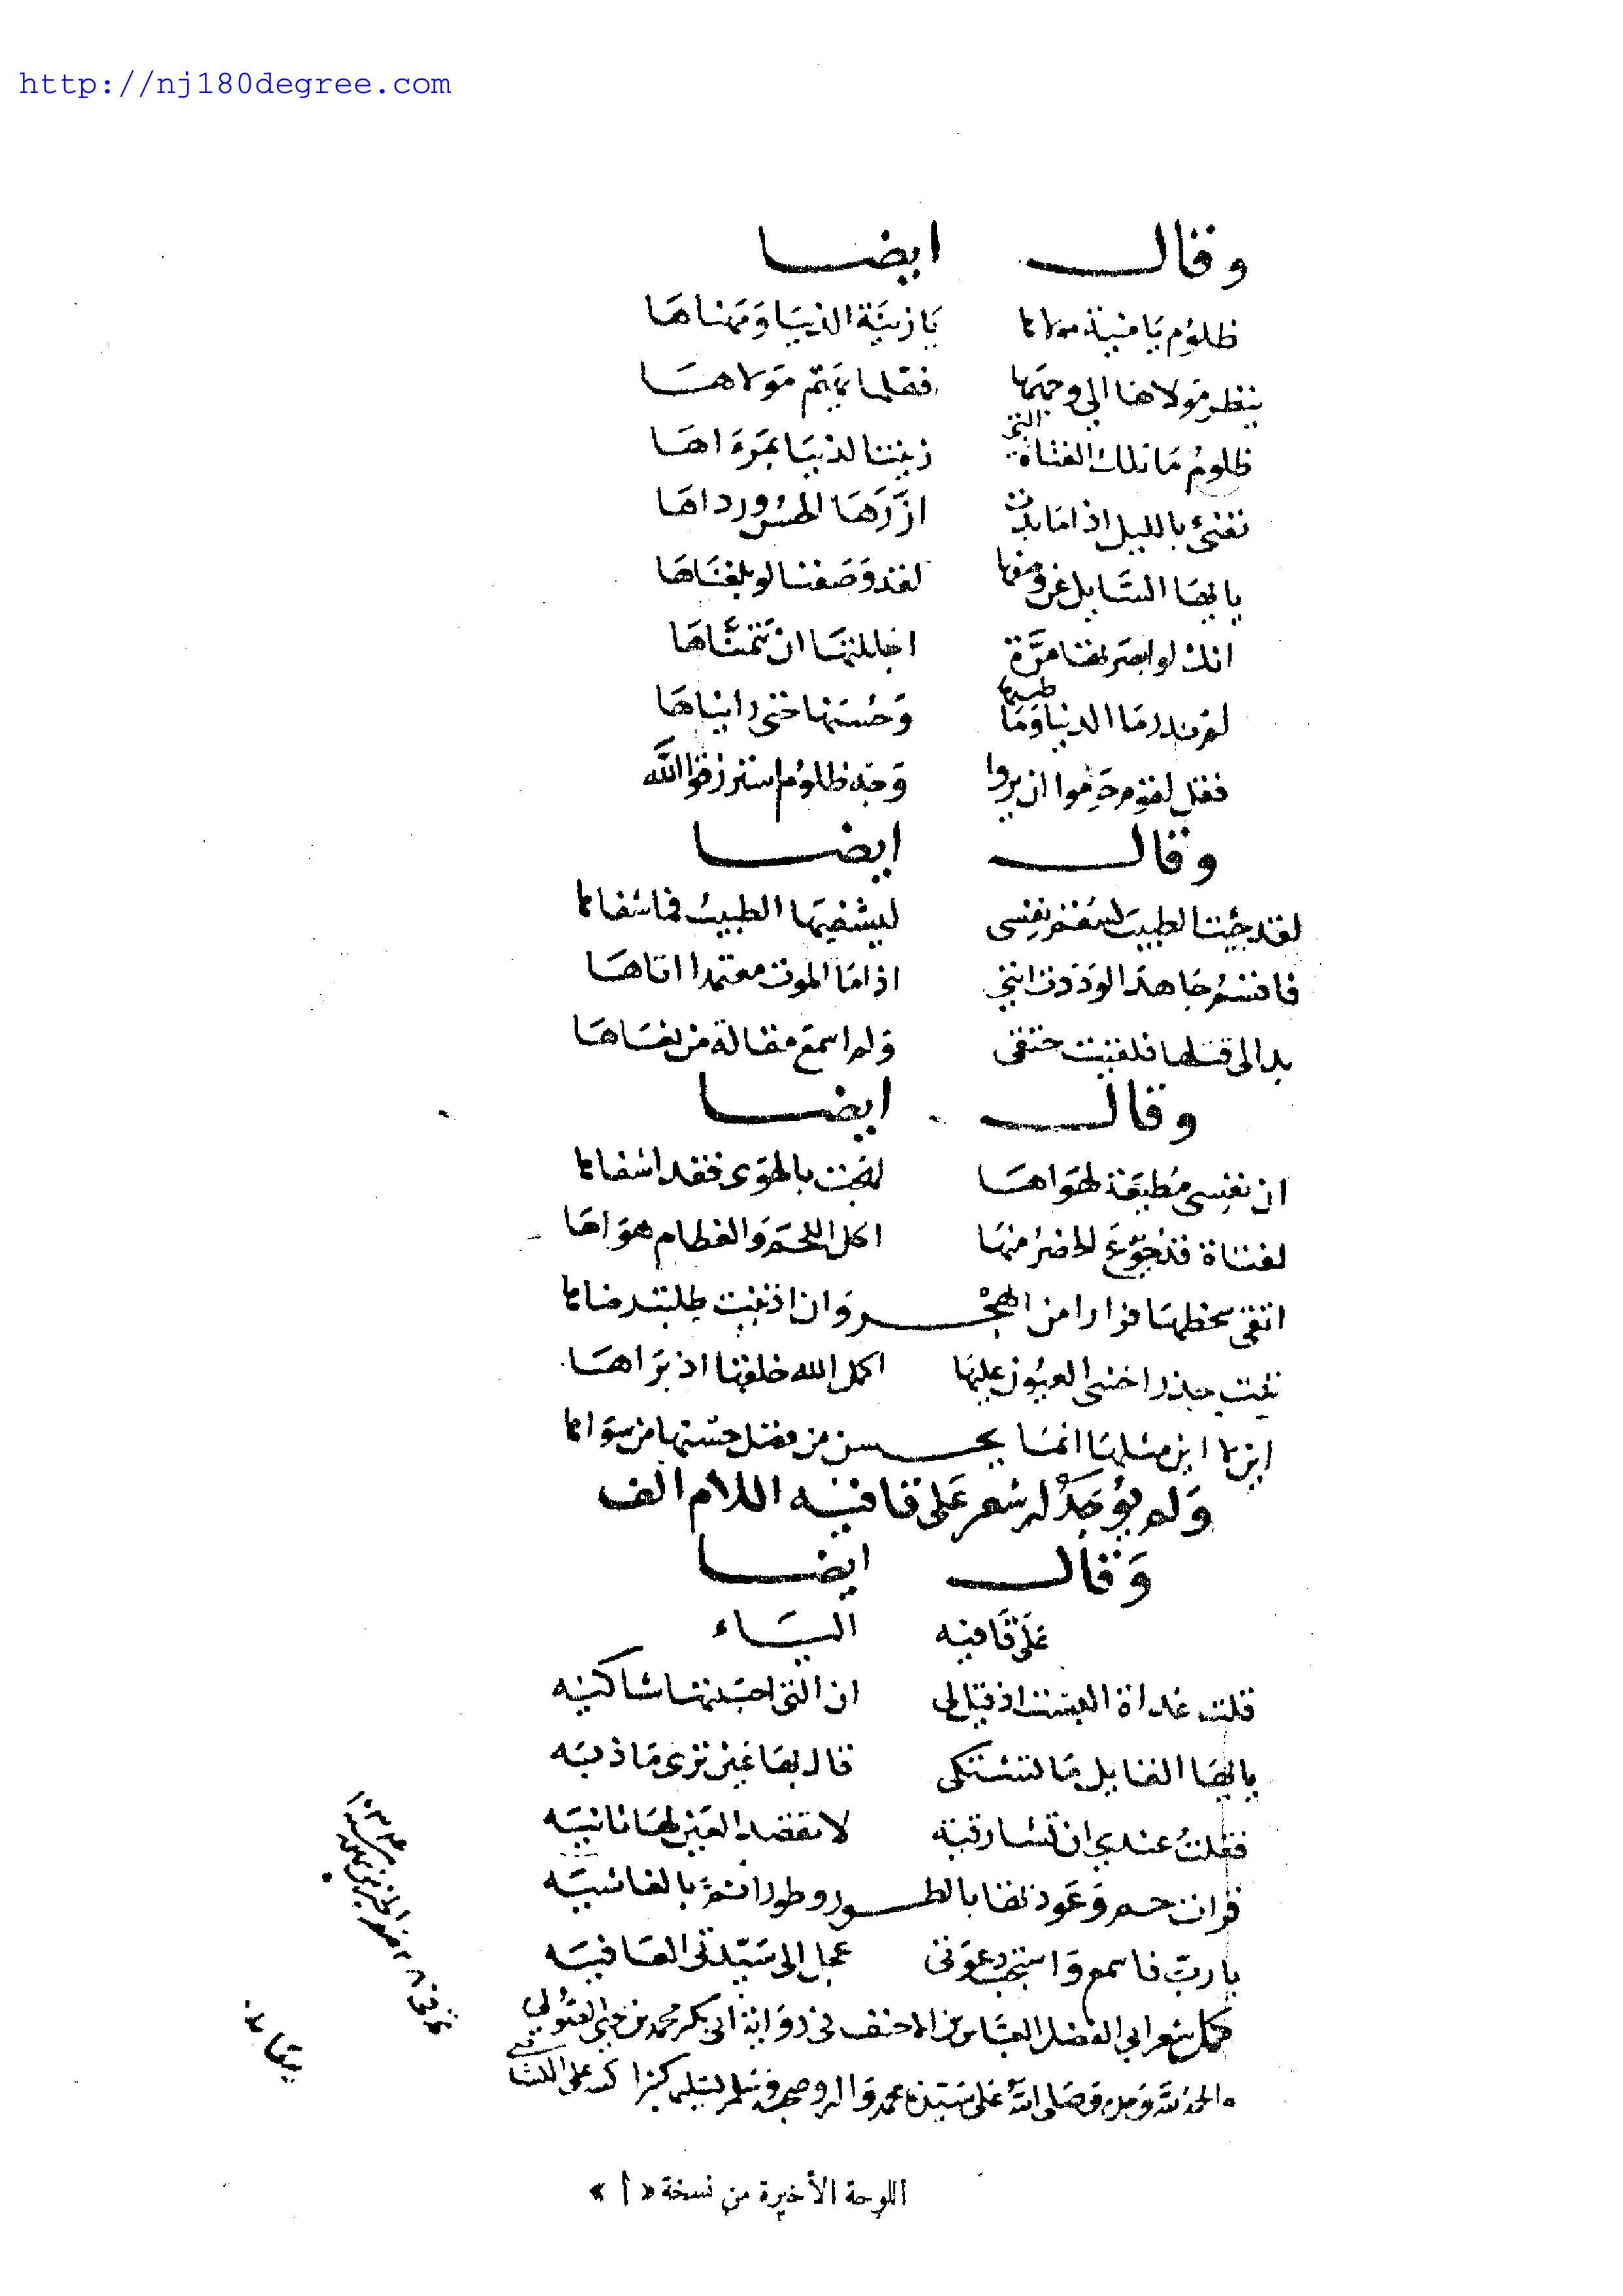 http://nj180degree.com
وقال ايضا
ظلوم يا منية مولاها يا زينة الدنيا ومهناها
ينظر مولاها الى وجهها فقلما يهتم مولاها
ظلوم ما تلك الفتاة التى زينت الدنيا بمرءاها
تغنى بالليل اذا ما بدت ازرها الحسن ورداها
يا ايها السايل عن وصفها لقد وصفنا لو بلغناها
انك لو ابصرتها مرة اجللتها ان تتمناها
لم ندر ما الدنيا وما طيبها وحسنها حتى رايناها
فقل لقوم حرموا ان يروا وجه ظلوم استرزقوا الله
وقال ايضا
لقد جيت الطبيب لسقم نفسى ليشفيها الطبيب فما شفاها
فاقسم جاهدا لوددت انى اذا ما الموت معتمدا اتاها
بدا لى قبلها فلقيت حتفى ولم اسمع مقالة من نعاها
وقال ايضا
ان نفسى مطيعة لهواها لهجت بالهوى فقد اشفاها
لفتاة قد جوع الخضر منها اكل اللحم والعظام هواها
اتقى سخطها فرارا من الهجر وان اذنبت طلبت رضاها
تغيت حذرا خشى العيون عليها اكمل الله خلقها اذ براها
اين لا اين مثلها انما يحسن من فضل حسنها من سواها
ولم يوجد له شعر على قافيه اللام الف
وقال ايضا
على قافيه الياء
قلت غداة السبت اذ قيل لى ان التى احببتها شاكيه
يا ايها القايل ما تشتكى قال بها عين ترى ماذيه
فقلت عندي ان تشا رقية لا تقصد العين لها ثانيه
قرات حم وعوذتها بالطور وطورا ثم بالغاشيه
يا رب فاسمع واستجب دعوتى عجل الى سيدتى العافيه
كمل شعر ابي الفضل العباس بن الاحنف فى رواية ابى بكر محمد بن يحيى الصولى
الحمد لله وحده وصلى الله على سيدنا محمد واله وصحبه وسلم تسليما كثيرا
اللوحة الأخيرة من نسخة « أ »